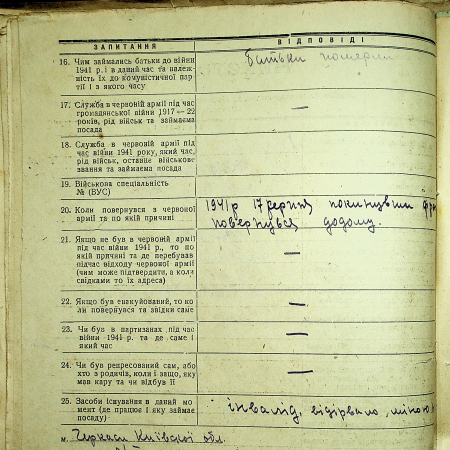 ЗАПИТАННЯ
ВІДПОВІДІ
16. Чим займались батьки до війни
1941 р. і в даний час та належ-
ність їх до комуністичної пар-
тії і з якого часу
батьки померли
17. Служба в червоній армії під час
громадянської війни 1917—22
років, рід військ та займаєма
посада
—
18. Служба в червоній армії під
час війни 1941 року, який час,
рід військ, останнє військове
звання та займаєма посада
19. Військова спеціальність
№ (ВУС)
20. Коли повернувся з червоної
армії та по якій причині
1941 р 17 серпня покинувши
повернувся додому.
21. Якщо не був в червоній армії
під час війни 1941 р., то по
якій причині та де перебував
підчас відходу червоної армії
(чим може підтвердити, а коли
свідками то їх адреса)
—
22. Якщо був евакуйований, то ко
ли повернувся та звідки саме
—
23. Чи був в партизанах під час
війни 1941 р. та де саме і
який час
—
24. Чи був репресований сам, або
хто з родичів, коли і защо, яку
мав кару та чи відбув її
—
25. Засоби існування в даний мо
мент (де працює і яку займає
посаду)
інвалід, відірвало міною
м. Черкаси Київської обл.